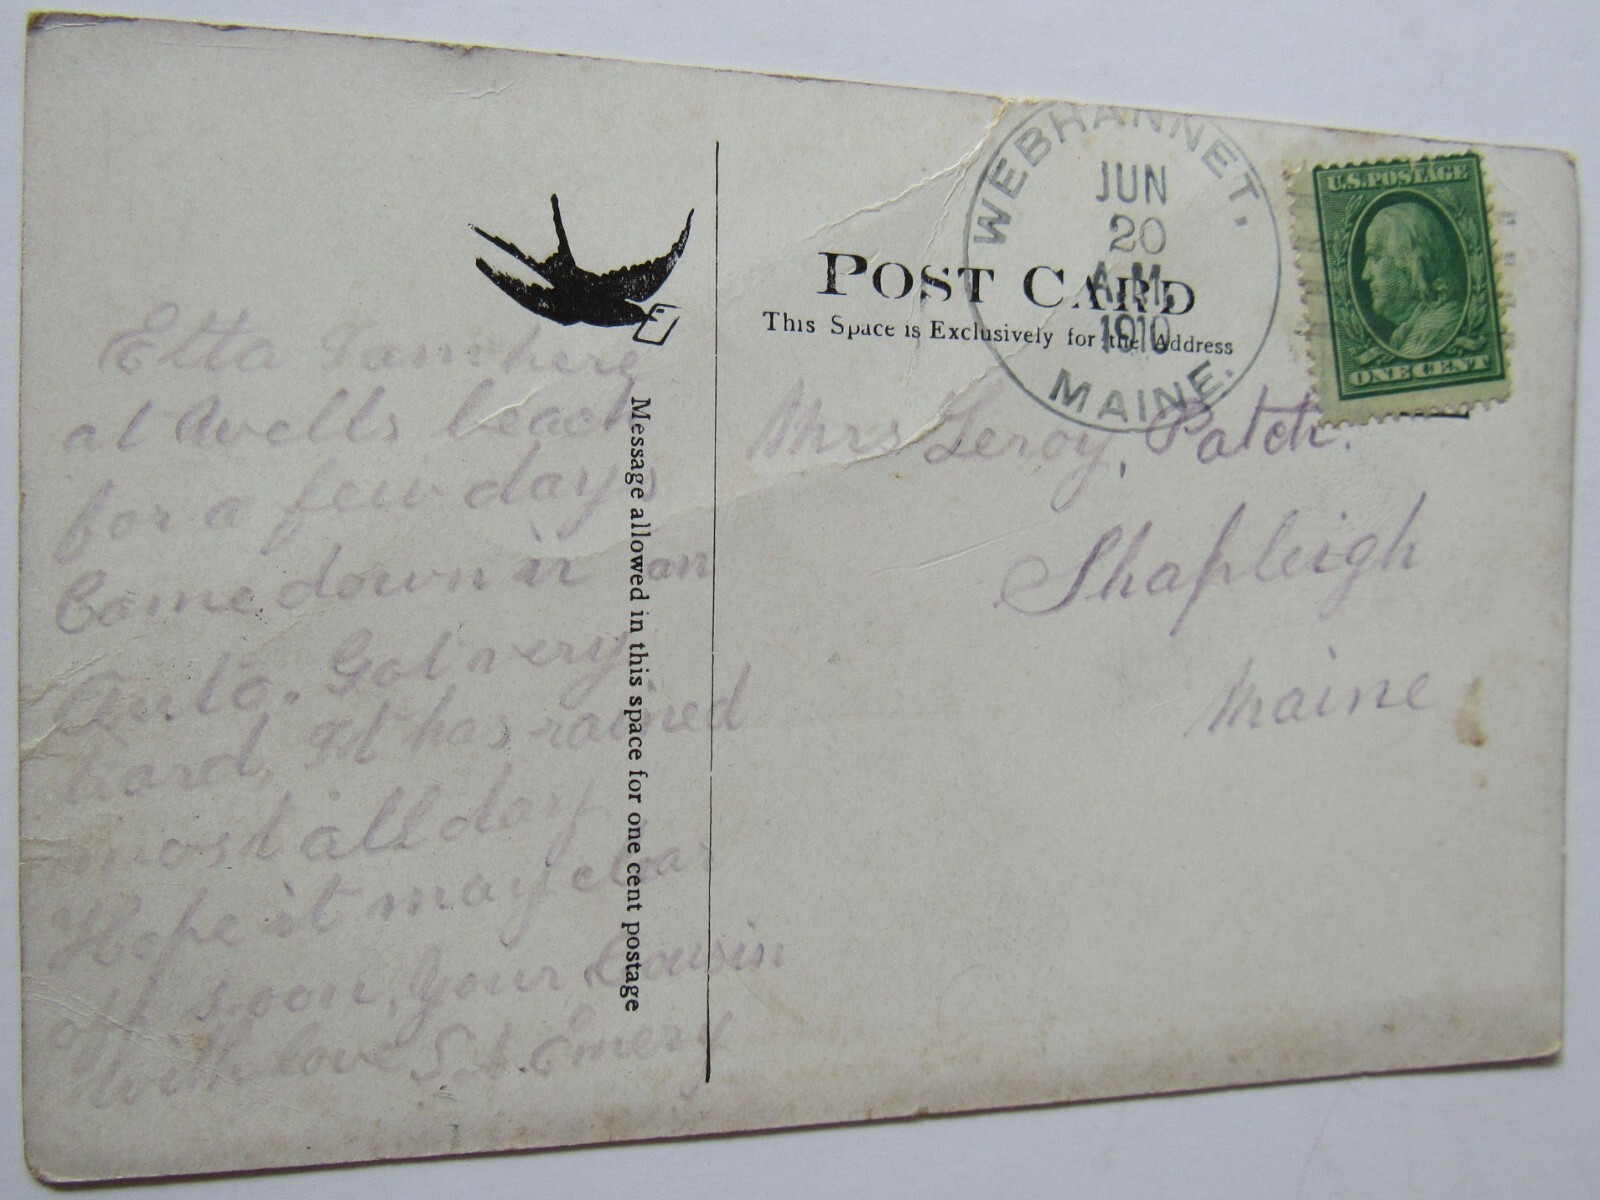 Etta I am here
at Wells beach
for a few days
Came down in an
Auto. Got very
hard, It has rained
most all day
Hope it may clear
off soon. Your Cousin
With love S. A. Emery
Message allowed in this space for one cent postage
WEBHANNET,
JUN
20
A.M.
1910
MAINE.
U.S. POSTAGE
ONE CENT
POST CARD
This Space is Exclusively for the Address
Mrs Leroy, Patch.
Shapleigh
Maine